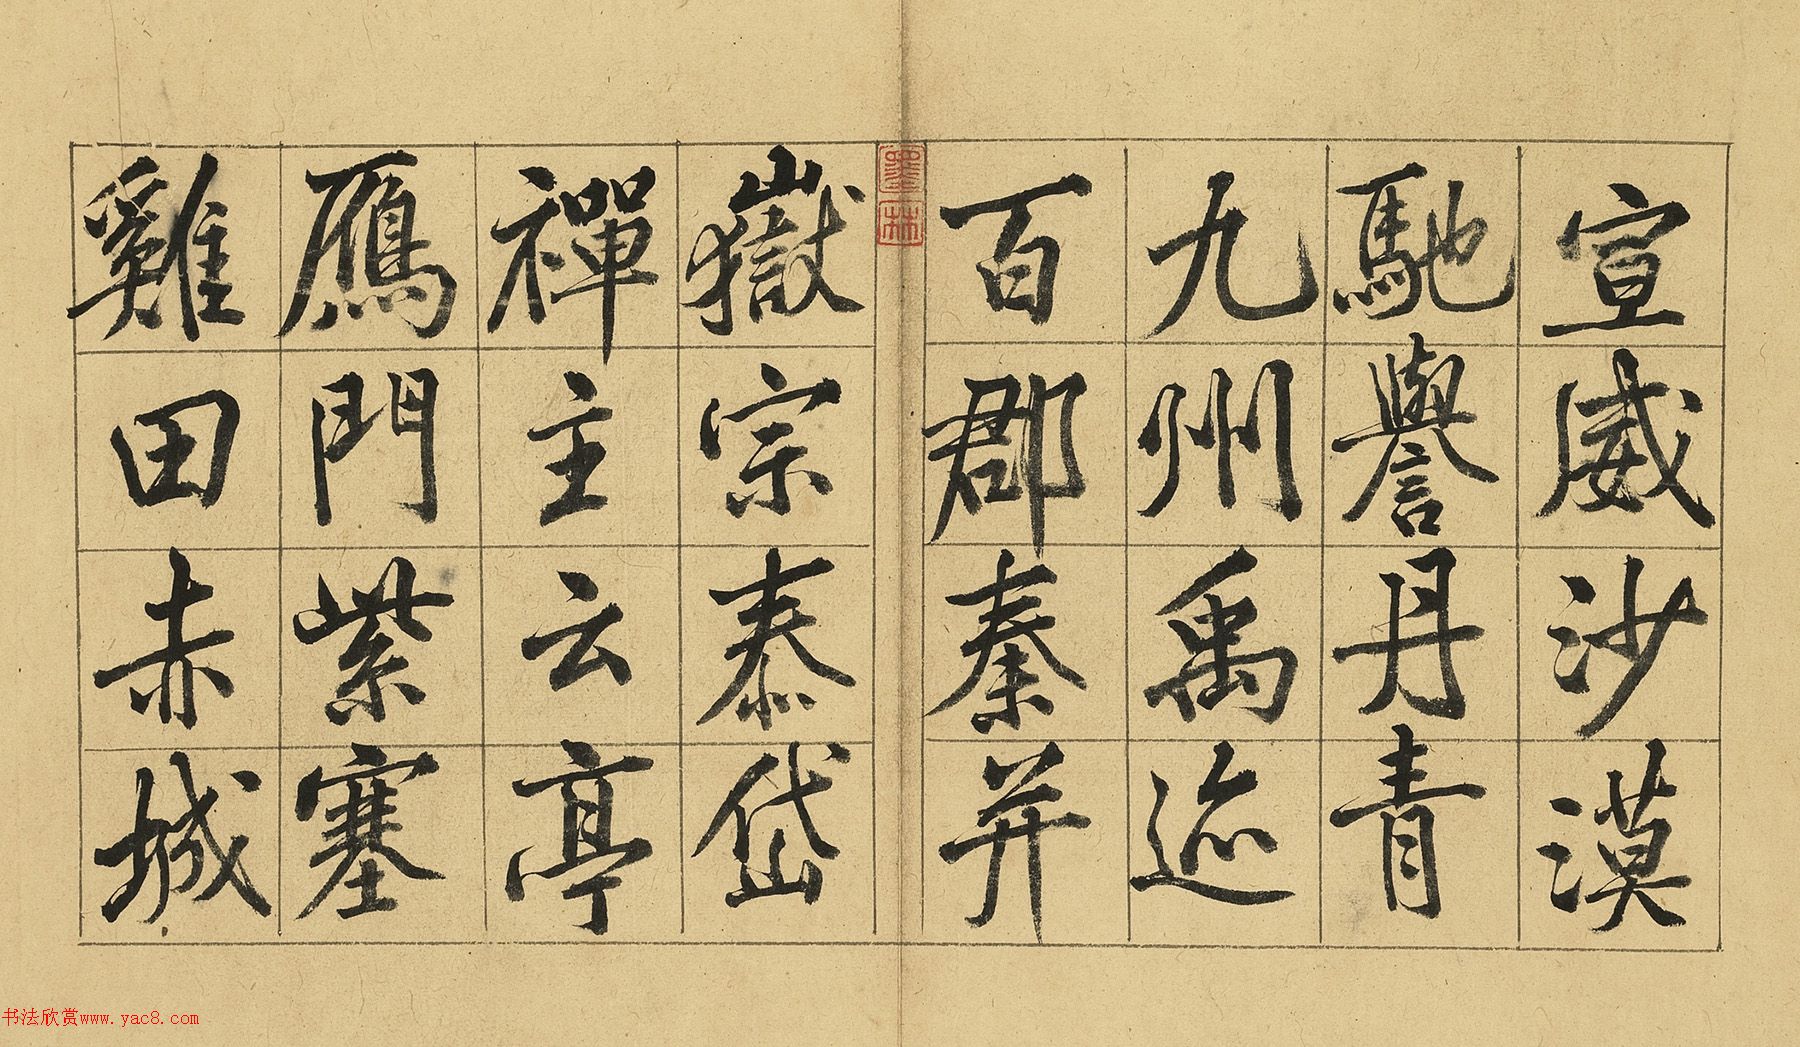 宣威沙漠
馳譽丹青
九州禹迹
百郡秦并
嶽宗泰岱
禪主云亭
鴈門紫塞
雞田赤城
墨林
书法欣赏www.yac8.com